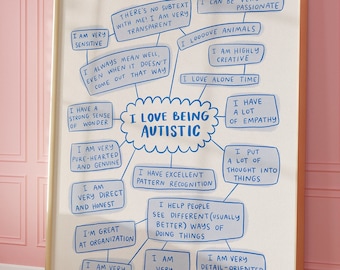 I CAN BE VERY
PASSIONATE
THERE'S NO SUBTEXT
WITH ME! I AM VERY
TRANSPARENT
I AM VERY
SENSITIVE
I LOOOOVE ANIMALS
I ALWAYS MEAN WELL,
EVEN WHEN IT DOESN'T
COME OUT THAT WAY
I AM HIGHLY
CREATIVE
I LOVE ALONE TIME
I HAVE A
STRONG SENSE
OF WONDER
I LOVE BEING
AUTISTIC
I HAVE
A LOT
OF EMPATHY
I AM VERY
PURE-HEARTED
AND GENUINE
I HAVE EXCELLENT
PATTERN RECOGNITION
I PUT
A LOT OF
THOUGHT INTO
THINGS
I AM VERY
DIRECT
AND HONEST
I HELP PEOPLE
SEE DIFFERENT (USUALLY
BETTER) WAYS OF
DOING THINGS
I'M GREAT
AT ORGANIZATION
I AM VERY
I AM
VERY
I AM VERY
DETAIL-ORIENTED